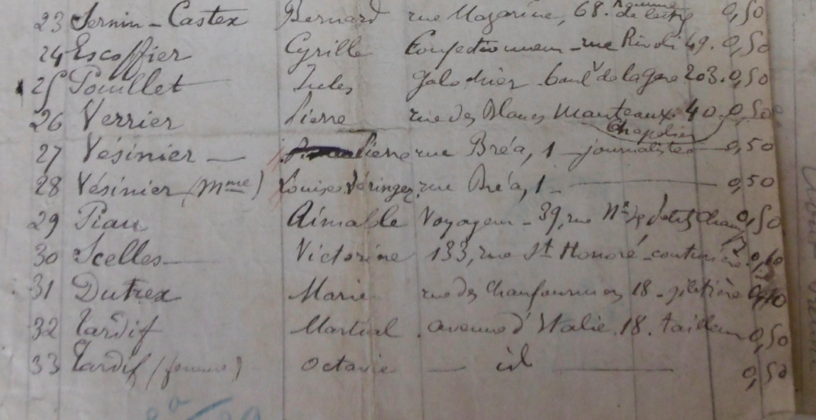 23 Sernin-Castex Bernard rue Mazarine, 68. homme de lettres 0,50
24 Escoffier Cyrille Confectionneur - rue Rivoli 49. 0,50
25 Pouillet Jules galochier boulvd de la gare 203. 0,50
26 Verrier Pierre rue des Blancs Manteaux 40. 0,50
Chapelier
27 Vésinier Pierre rue Bréa, 1 journaliste 0,50
28 Vésinier (Mme) Louise Séringer rue Bréa, 1 - 0,50
29 Piau Aimable Voyageur - 39, rue Nve des Petits Champs 0,50
30 Scelles Victorine 133, rue St Honoré, couturière 0,10
31 Dutrex Marie rue des Chaufourniers 18 - giletière 0,10
32 Tardif Martial avenue d'Italie. 18. tailleur 0,50
33 Tardif (femme) Octavie - id 0,50